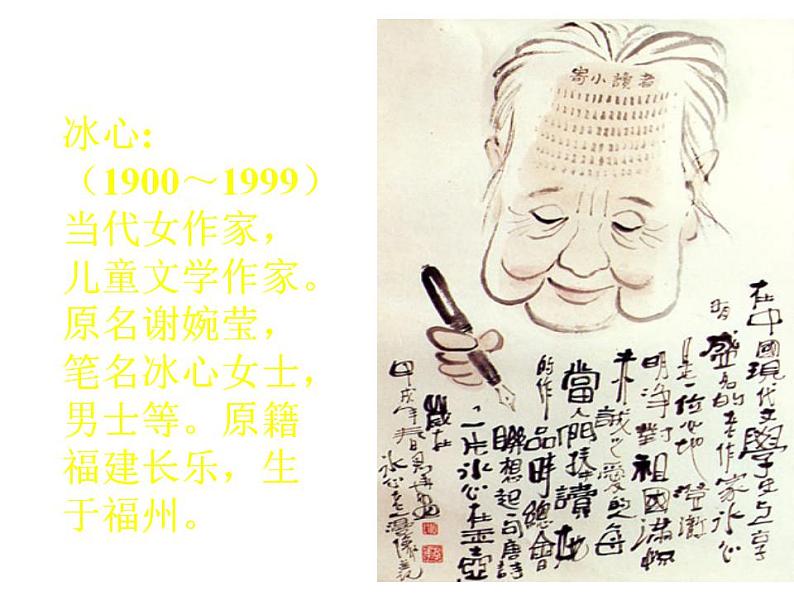 冰心:
（1900～1999）
当代女作家，
儿童文学作家。
原名谢婉莹，
笔名冰心女士，
男士等。原籍
福建长乐，生
于福州。
寄小讀者
在中國現代文學史上享
有盛名的老作家冰心
是一位心地澄澈
明净對祖國滿懷
赤誠之愛的每
當人們捧讀她
的作品時總會
聯想起一句唐詩
一片冰心在玉壺
歲在
甲戌年春